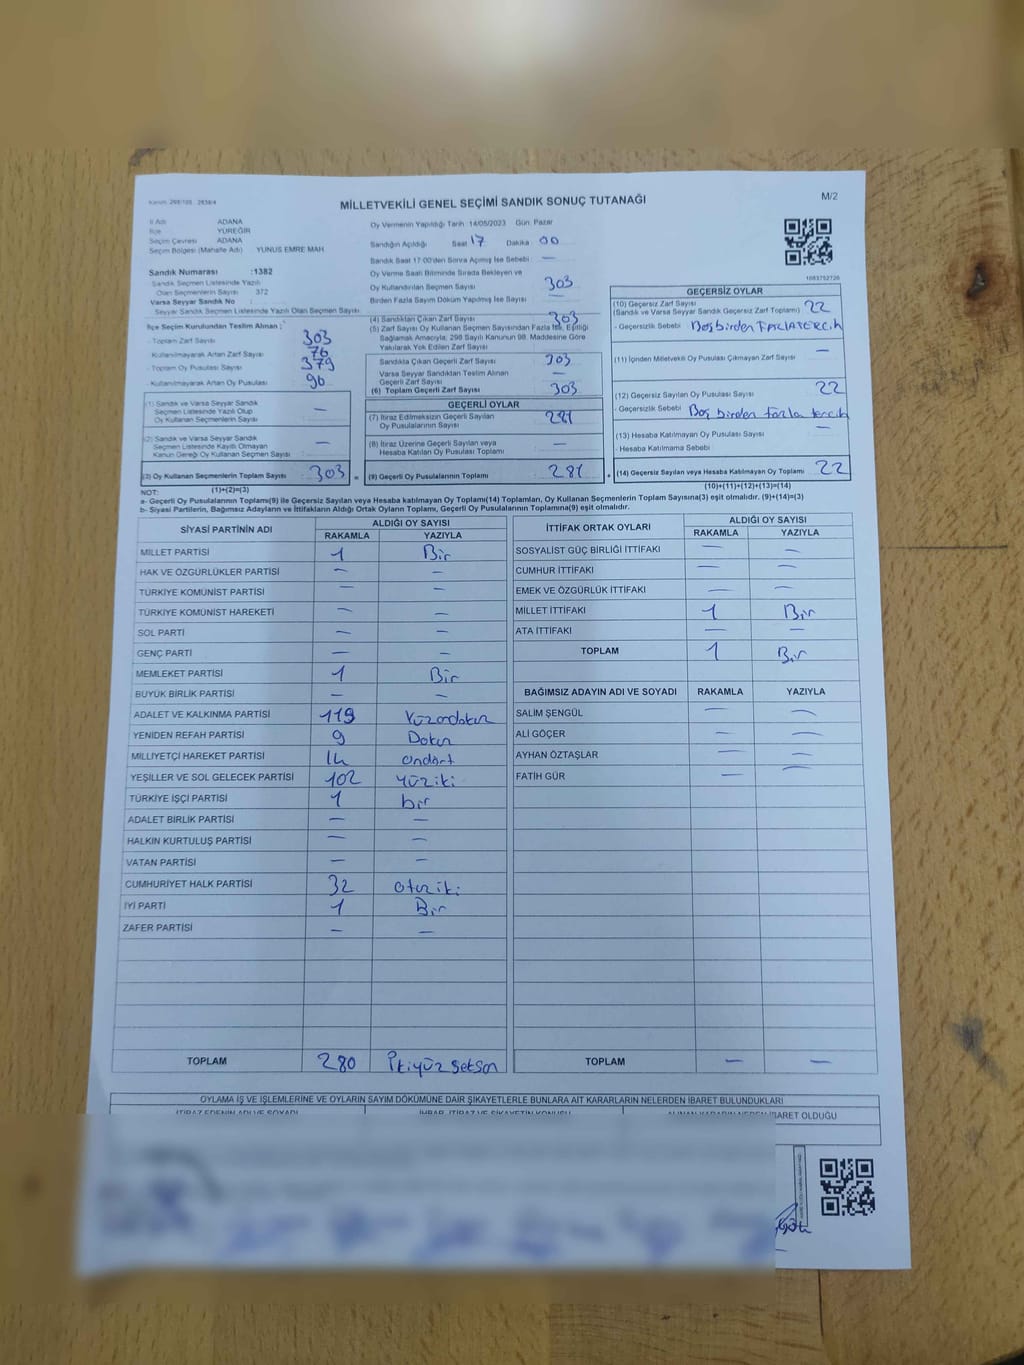 MİLLETVEKİLİ GENEL SEÇİMİ SANDIK SONUÇ TUTANAĞI
M/2
İl Adı ADANA
İlçe YÜREĞİR
Seçim Çevresi ADANA
Seçim Bölgesi (Mahalle Adı) YUNUS EMRE MAH
Sandık Numarası :1382
Sandık Seçmen Listesinde Yazılı
Olan Seçmenlerin Sayısı 372
Varsa Seyyar Sandık No
Seyyar Sandık Seçmen Listesinde Yazılı Olan Seçmen Sayısı
İlçe Seçim Kurulundan Teslim Alınan :
- Toplam Zarf Sayısı 303
- Kullanılmayarak Artan Zarf Sayısı 76
- Toplam Oy Pusulası 379
- Kullanılmayarak Artan Oy Pusulası 96
(1) Sandık ve Varsa Seyyar Sandık
Seçmen Listesinde Yazılı Olup
Oy Kullanan Seçmenlerin Sayısı —
(2) Sandık ve Varsa Seyyar Sandık
Seçmen Listesinde Kayıtlı Olmayan
Kanun Gereği Oy Kullanan Seçmen Sayısı —
(3) Oy Kullanan Seçmenlerin Toplam Sayısı 303 =
(1)+(2)=(3)
Oy Vermenin Yapıldığı Tarih 14/05/2023 Gün: Pazar
Sandığın Açıldığı Saat 17 Dakika 00
Sandık Saat 17:00'den Sonra Açılmış İse Sebebi —
Oy Verme Saati Bitiminde Sırada Bekleyen ve
Oy Kullandırılan Seçmen Sayısı 303
Birden Fazla Sayım Döküm Yapılmış İse Sayısı —
(4) Sandıktan Çıkan Zarf Sayısı 303
(5) Zarf Sayısı Oy Kullanan Seçmen Sayısından Fazla İse, Eşitliği
Sağlamak Amacıyla, 298 Sayılı Kanunun 98. Maddesine Göre
Yakılarak Yok Edilen Zarf Sayısı
Sandıkta Çıkan Geçerli Zarf Sayısı 303
Varsa Seyyar Sandıktan Teslim Alınan
Geçerli Zarf Sayısı —
(6) Toplam Geçerli Zarf Sayısı 303
GEÇERLİ OYLAR
(7) İtiraz Edilmeksizin Geçerli Sayılan
Oy Pusulalarının Sayısı 281
(8) İtiraz Üzerine Geçerli Sayılan veya
Hesaba Katılan Oy Pusulaları Toplamı —
(9) Geçerli Oy Pusulalarının Toplamı 281 +
1083752726
GEÇERSİZ OYLAR
(10) Geçersiz Zarf Sayısı
(Sandık ve Varsa Seyyar Sandık Geçersiz Zarf Toplamı) 22
- Geçersizlik Sebebi Boş birden FAZLA TERCİh
(11) İçinden Milletvekili Oy Pusulası Çıkmayan Zarf Sayısı —
(12) Geçersiz Sayılan Oy Pusulası Sayısı 22
- Geçersizlik Sebebi Boş birden fazla tercih
(13) Hesaba Katılmayan Oy Pusulası Sayısı —
- Hesaba Katılmama Sebebi
(14) Geçersiz Sayılan veya Hesaba Katılmayan Oy Toplamı 22
(10)+(11)+(12)+(13)=(14)
NOT:
a- Geçerli Oy Pusulalarının Toplamı(9) ile Geçersiz Sayılan veya Hesaba Katılmayan Oy Toplamı(14) Toplamları, Oy Kullanan Seçmenlerin Toplam Sayısına(3) eşit olmalıdır. (9)+(14)=(3)
b- Siyasi Partilerin, Bağımsız Adayların ve İttifakların Aldığı Ortak Oyların Toplamı, Geçerli Oy Pusulalarının Toplamına(9) eşit olmalıdır.
SİYASİ PARTİNİN ADI ALDIĞI OY SAYISI
RAKAMLA YAZIYLA
MİLLET PARTİSİ 1 Bir
HAK VE ÖZGÜRLÜKLER PARTİSİ — —
TÜRKİYE KOMÜNİST PARTİSİ — —
TÜRKİYE KOMÜNİST HAREKETİ — —
SOL PARTİ — —
GENÇ PARTİ — —
MEMLEKET PARTİSİ 1 Bir
BÜYÜK BİRLİK PARTİSİ — —
ADALET VE KALKINMA PARTİSİ 119 Yüzondokuz
YENİDEN REFAH PARTİSİ 9 Dokuz
MİLLİYETÇİ HAREKET PARTİSİ 14 ondört
YEŞİLLER VE SOL GELECEK PARTİSİ 102 yüziki
TÜRKİYE İŞÇİ PARTİSİ 1 bir
ADALET BİRLİK PARTİSİ — —
HALKIN KURTULUŞ PARTİSİ — —
VATAN PARTİSİ — —
CUMHURİYET HALK PARTİSİ 32 otuziki
İYİ PARTİ 1 Bir
ZAFER PARTİSİ — —
TOPLAM 280 İkiyüz Seksen
İTTİFAK ORTAK OYLARI ALDIĞI OY SAYISI
RAKAMLA YAZIYLA
SOSYALİST GÜÇ BİRLİĞİ İTTİFAKI — —
CUMHUR İTTİFAKI — —
EMEK VE ÖZGÜRLÜK İTTİFAKI — —
MİLLET İTTİFAKI 1 Bir
ATA İTTİFAKI — —
TOPLAM 1 Bir
BAĞIMSIZ ADAYIN ADI VE SOYADI RAKAMLA YAZIYLA
SALİM ŞENGÜL — —
ALİ GÖÇER — —
AYHAN ÖZTAŞLAR — —
FATİH GÜR — —
TOPLAM — —
OYLAMA İŞ VE İŞLEMLERİNE VE OYLARIN SAYIM DÖKÜMÜNE DAİR ŞİKAYETLERLE BUNLARA AİT KARARLARIN NELERDEN İBARET BULUNDUKLARI
İTİRAZ EDENİN ADI VE SOYADI İHBAR, İTİRAZ VE ŞİKAYETİN KONUSU ALINAN KARARIN NEDEN İBARET OLDUĞU